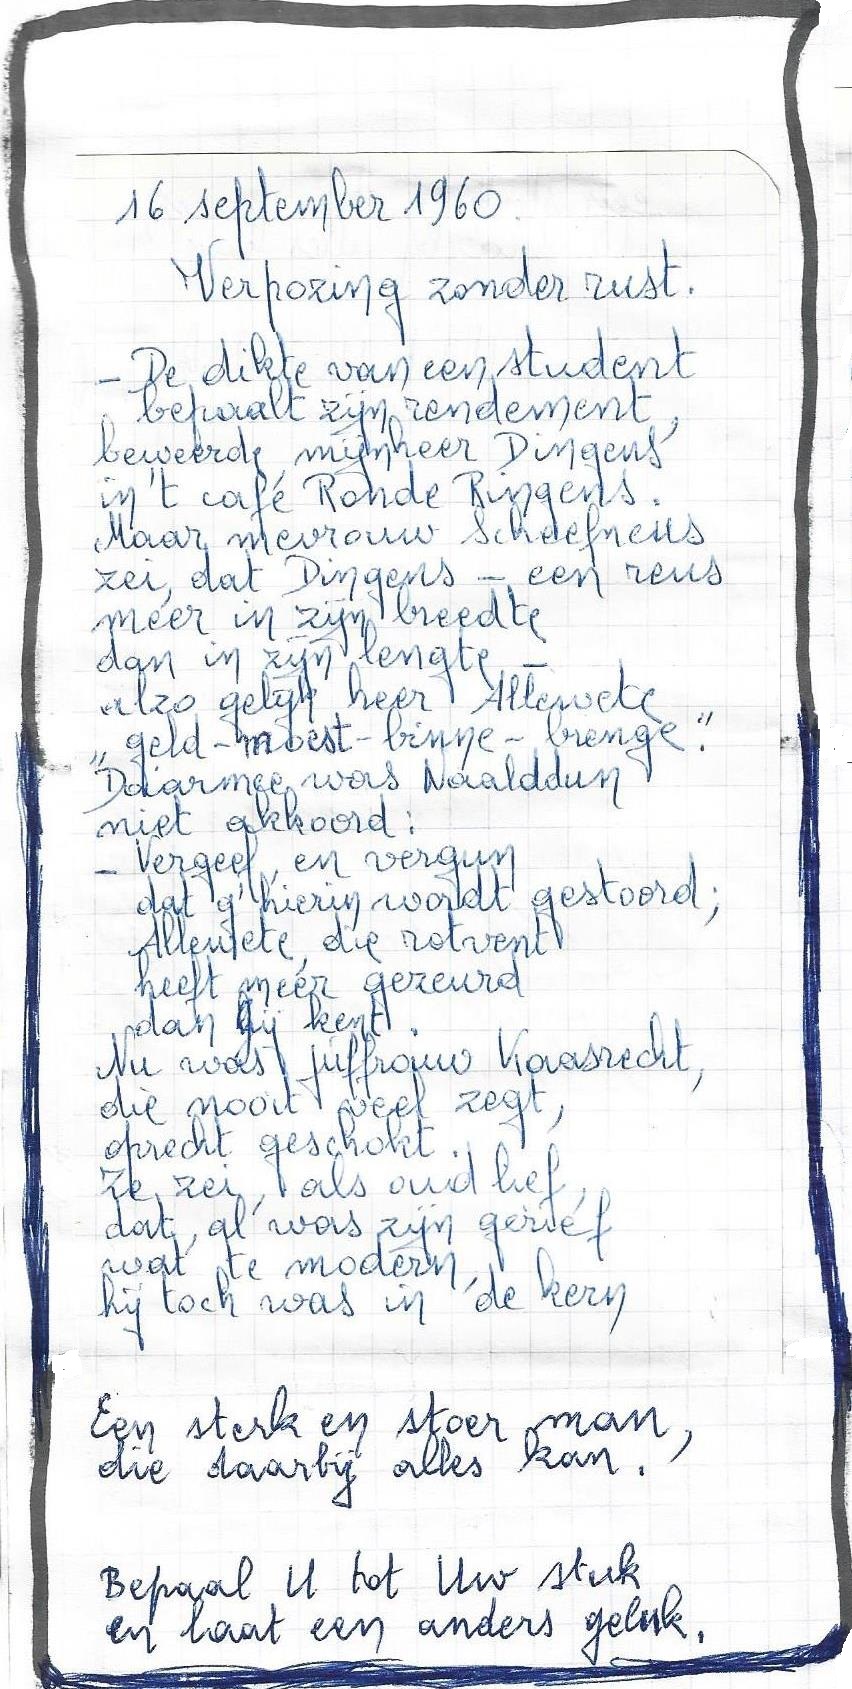 16 september 1960.
Verpozing zonder rust.
- De dikte van een student
bepaalt zijn rendement,
beweerde mijnheer Dingens
in 't café Ronde Ringens.
Maar mevrouw Scheefneus
zei, dat Dingens - een reus
méér in zijn breedte
dan in zijn lengte -
alzo gelijk heer Allewete
„geld-moest-binne-brenge".
Daarmee was Naalddun
niet akkoord:
- Vergeef en vergun
dat g' hierin wordt gestoord;
Allewete, die rotvent
heeft méér gezeurd
dan hij kent.
Nu was juffrouw Kaasrecht,
die nooit veel zegt,
oprecht geschokt.
Ze zei, als oud lief,
dat, al was zijn gerief
wat te modern,
hij toch was in de kern
Een sterk en stoer man,
die daarbij alles kan.
Bepaal U tot Uw stuk
en laat een anders geluk.